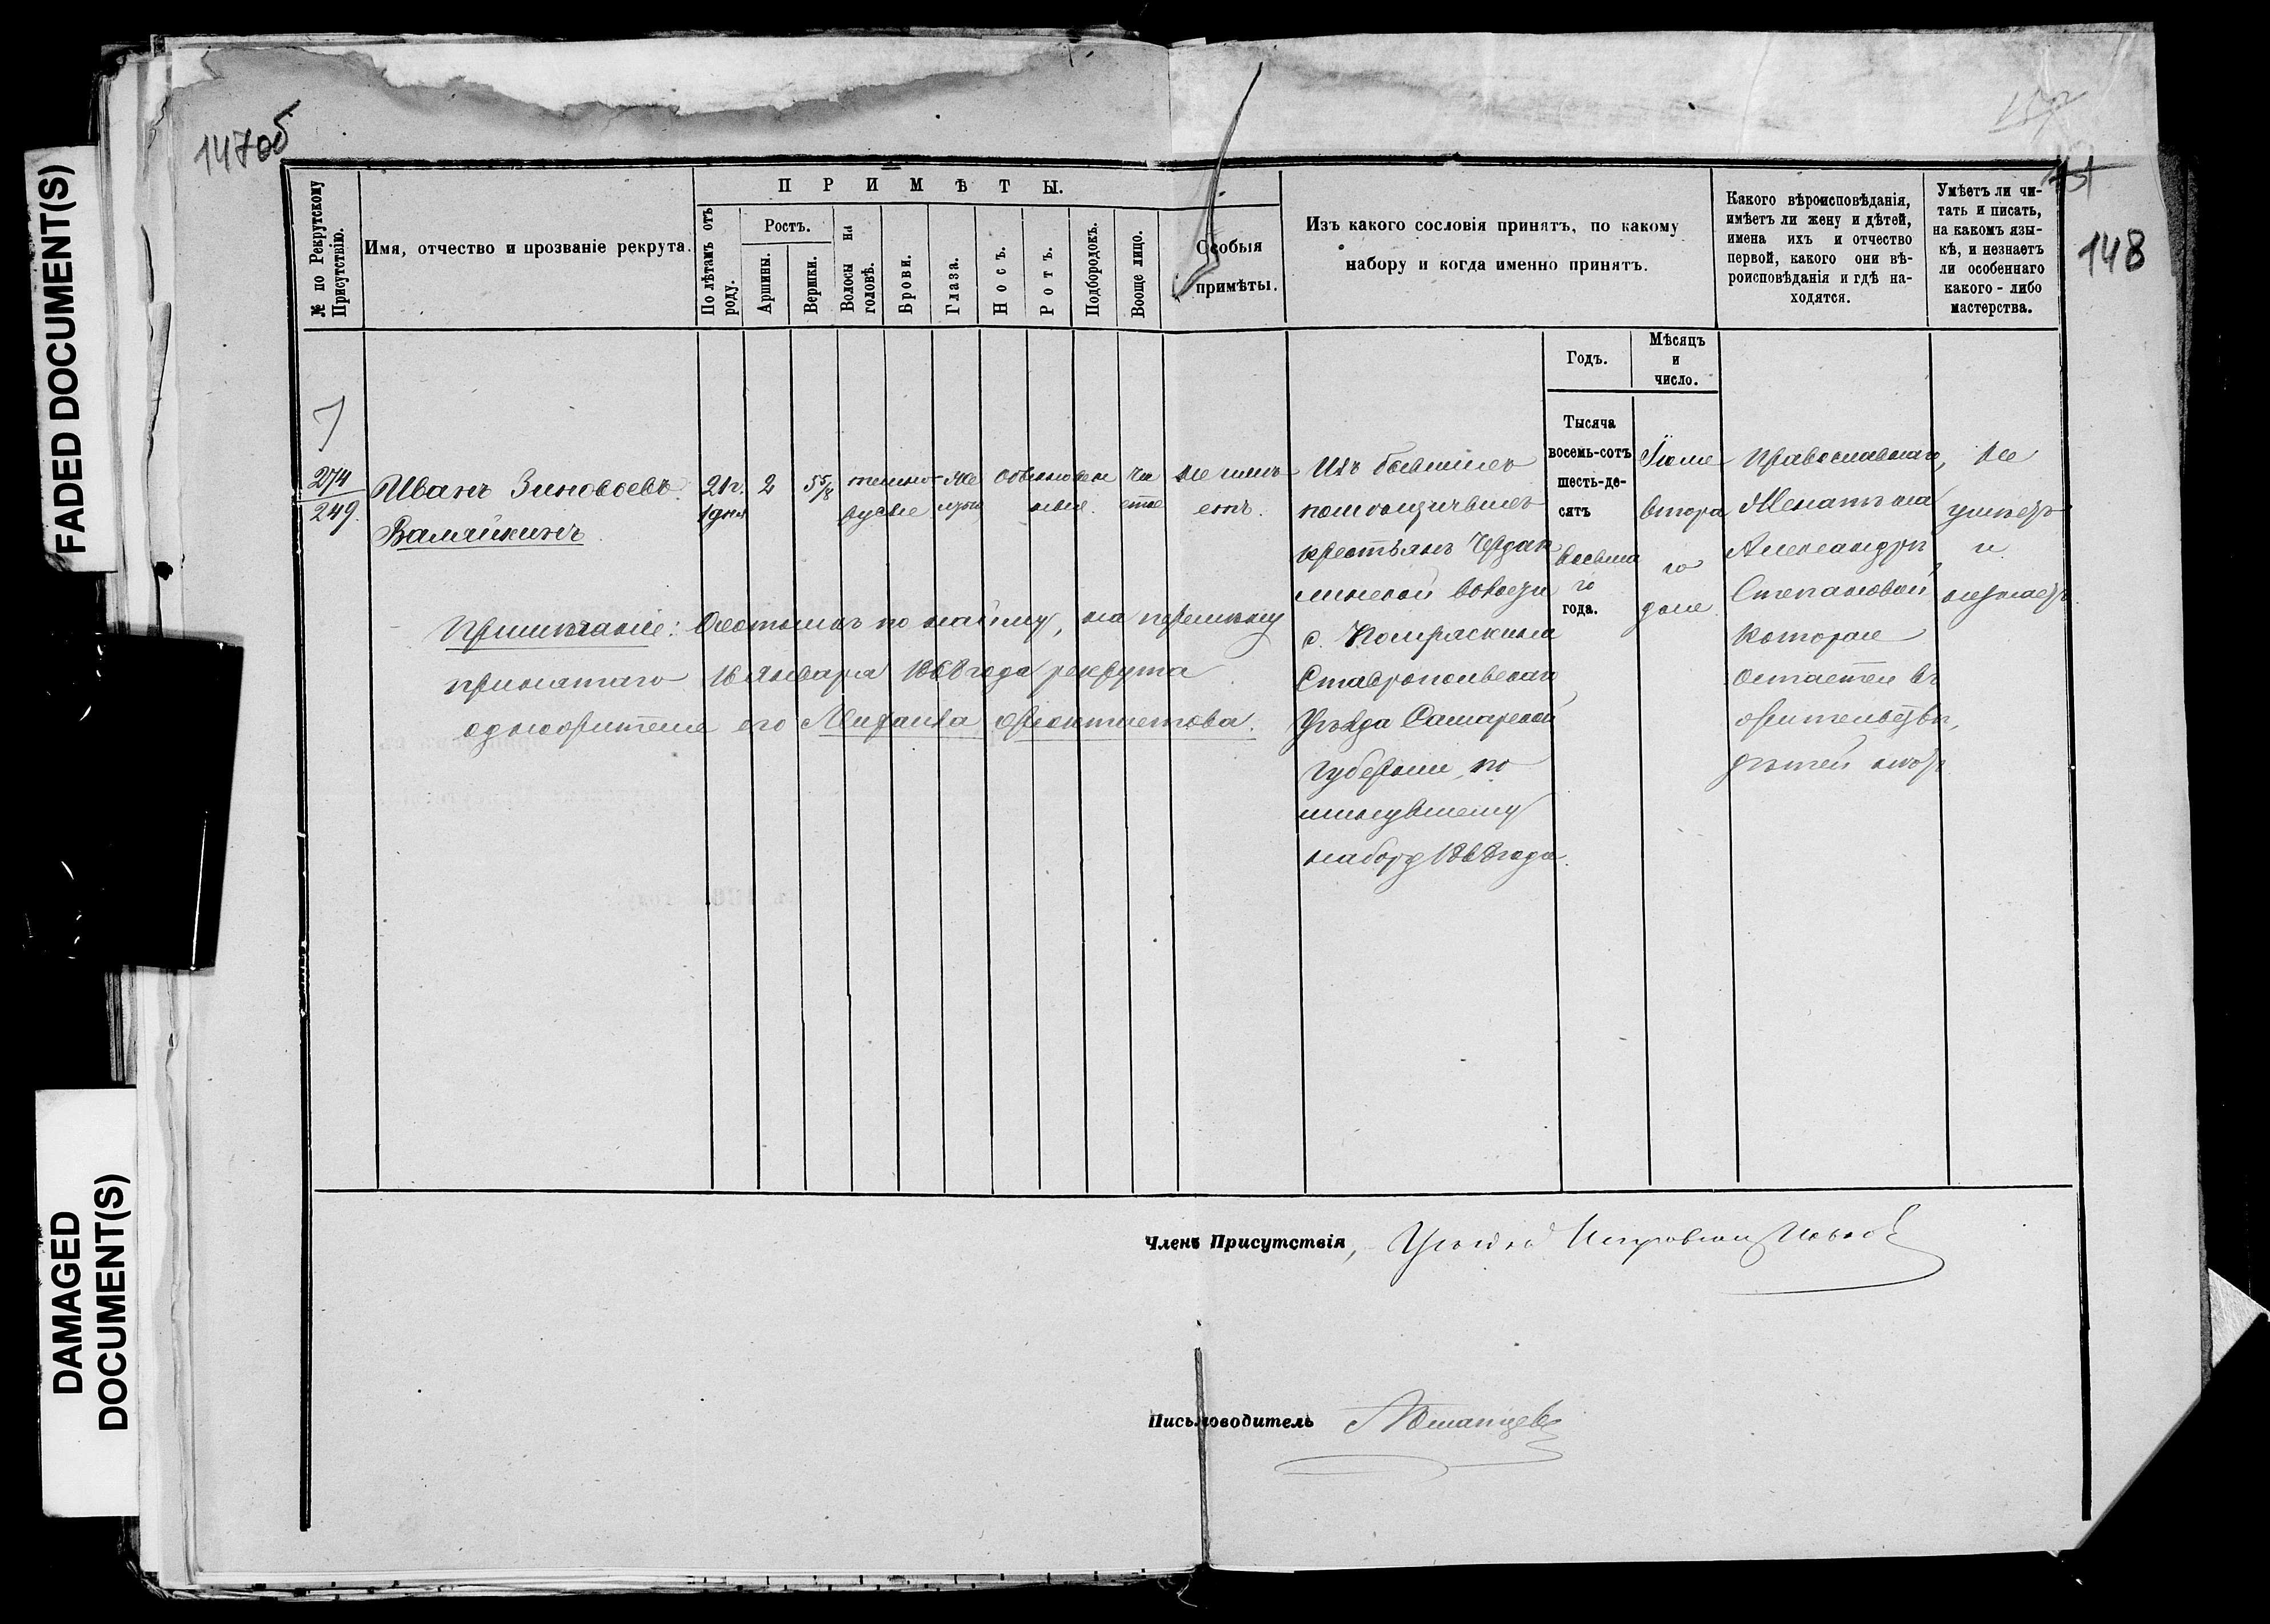 FADED DOCUMENT(S)
DAMAGED
DOCUMENT(S)
147об
148
№ по Рекрутскому
Присутствію.
Имя, отчество и прозваніе рекрута.
ПРИМѢТЫ.
По лѣтамъ отъ
роду.
Ростъ.
Аршины.
Вершки.
Волосы на
головѣ.
Брови.
Глаза.
Носъ.
Ротъ.
Подбородокъ.
Вооще лицо.
Особыя
примѣты.
Изъ какого сословія принятъ, по какому
набору и когда именно принятъ.
Какого вѣроисповѣданія,
имѣетъ ли жену и дѣтей,
имена ихъ и отчество
первой, какого они вѣ-
роисповѣданія и гдѣ на-
ходятся.
Умѣетъ ли чи-
тать и писать,
на какомъ язы-
кѣ, и незнаетъ
ли особеннаго
какого - либо
мастерства.
Годъ.
Мѣсяцъ
и
число.
274
249.
Иванъ Зиновьевъ
Валяйкинъ
21 г.
1 дня
2
5 5/8
темно-
русые
обыкновен
ные.
чи
стое
не имѣ-
етъ.
Изъ бывшихъ
помѣщичьихъ
крестьянъ Чердак
линской волости
с. Помряскина
Ставропольскаго
Уѣзда Самарской
Губерніи, по
минувшему
набору 1868 года.
Тысяча
восемь-сотъ
шесть-де-
сятъ
восьма
го
года.
Іюня
втора
го
дня
Православнаго,
Женатъ на
Александрѣ
Степановой,
которая
остается въ
жительствѣ,
дѣтей нѣтъ
Не
умѣетъ
и
незнаетъ
Примѣчаніе: Охотникъ по найму, на перемѣну
принятаго 16 Января 1868 года рекрута
одножителя его Михаила Феоктистова.
Членъ Присутствія, Уѣздный Исправникъ
Письмоводитель